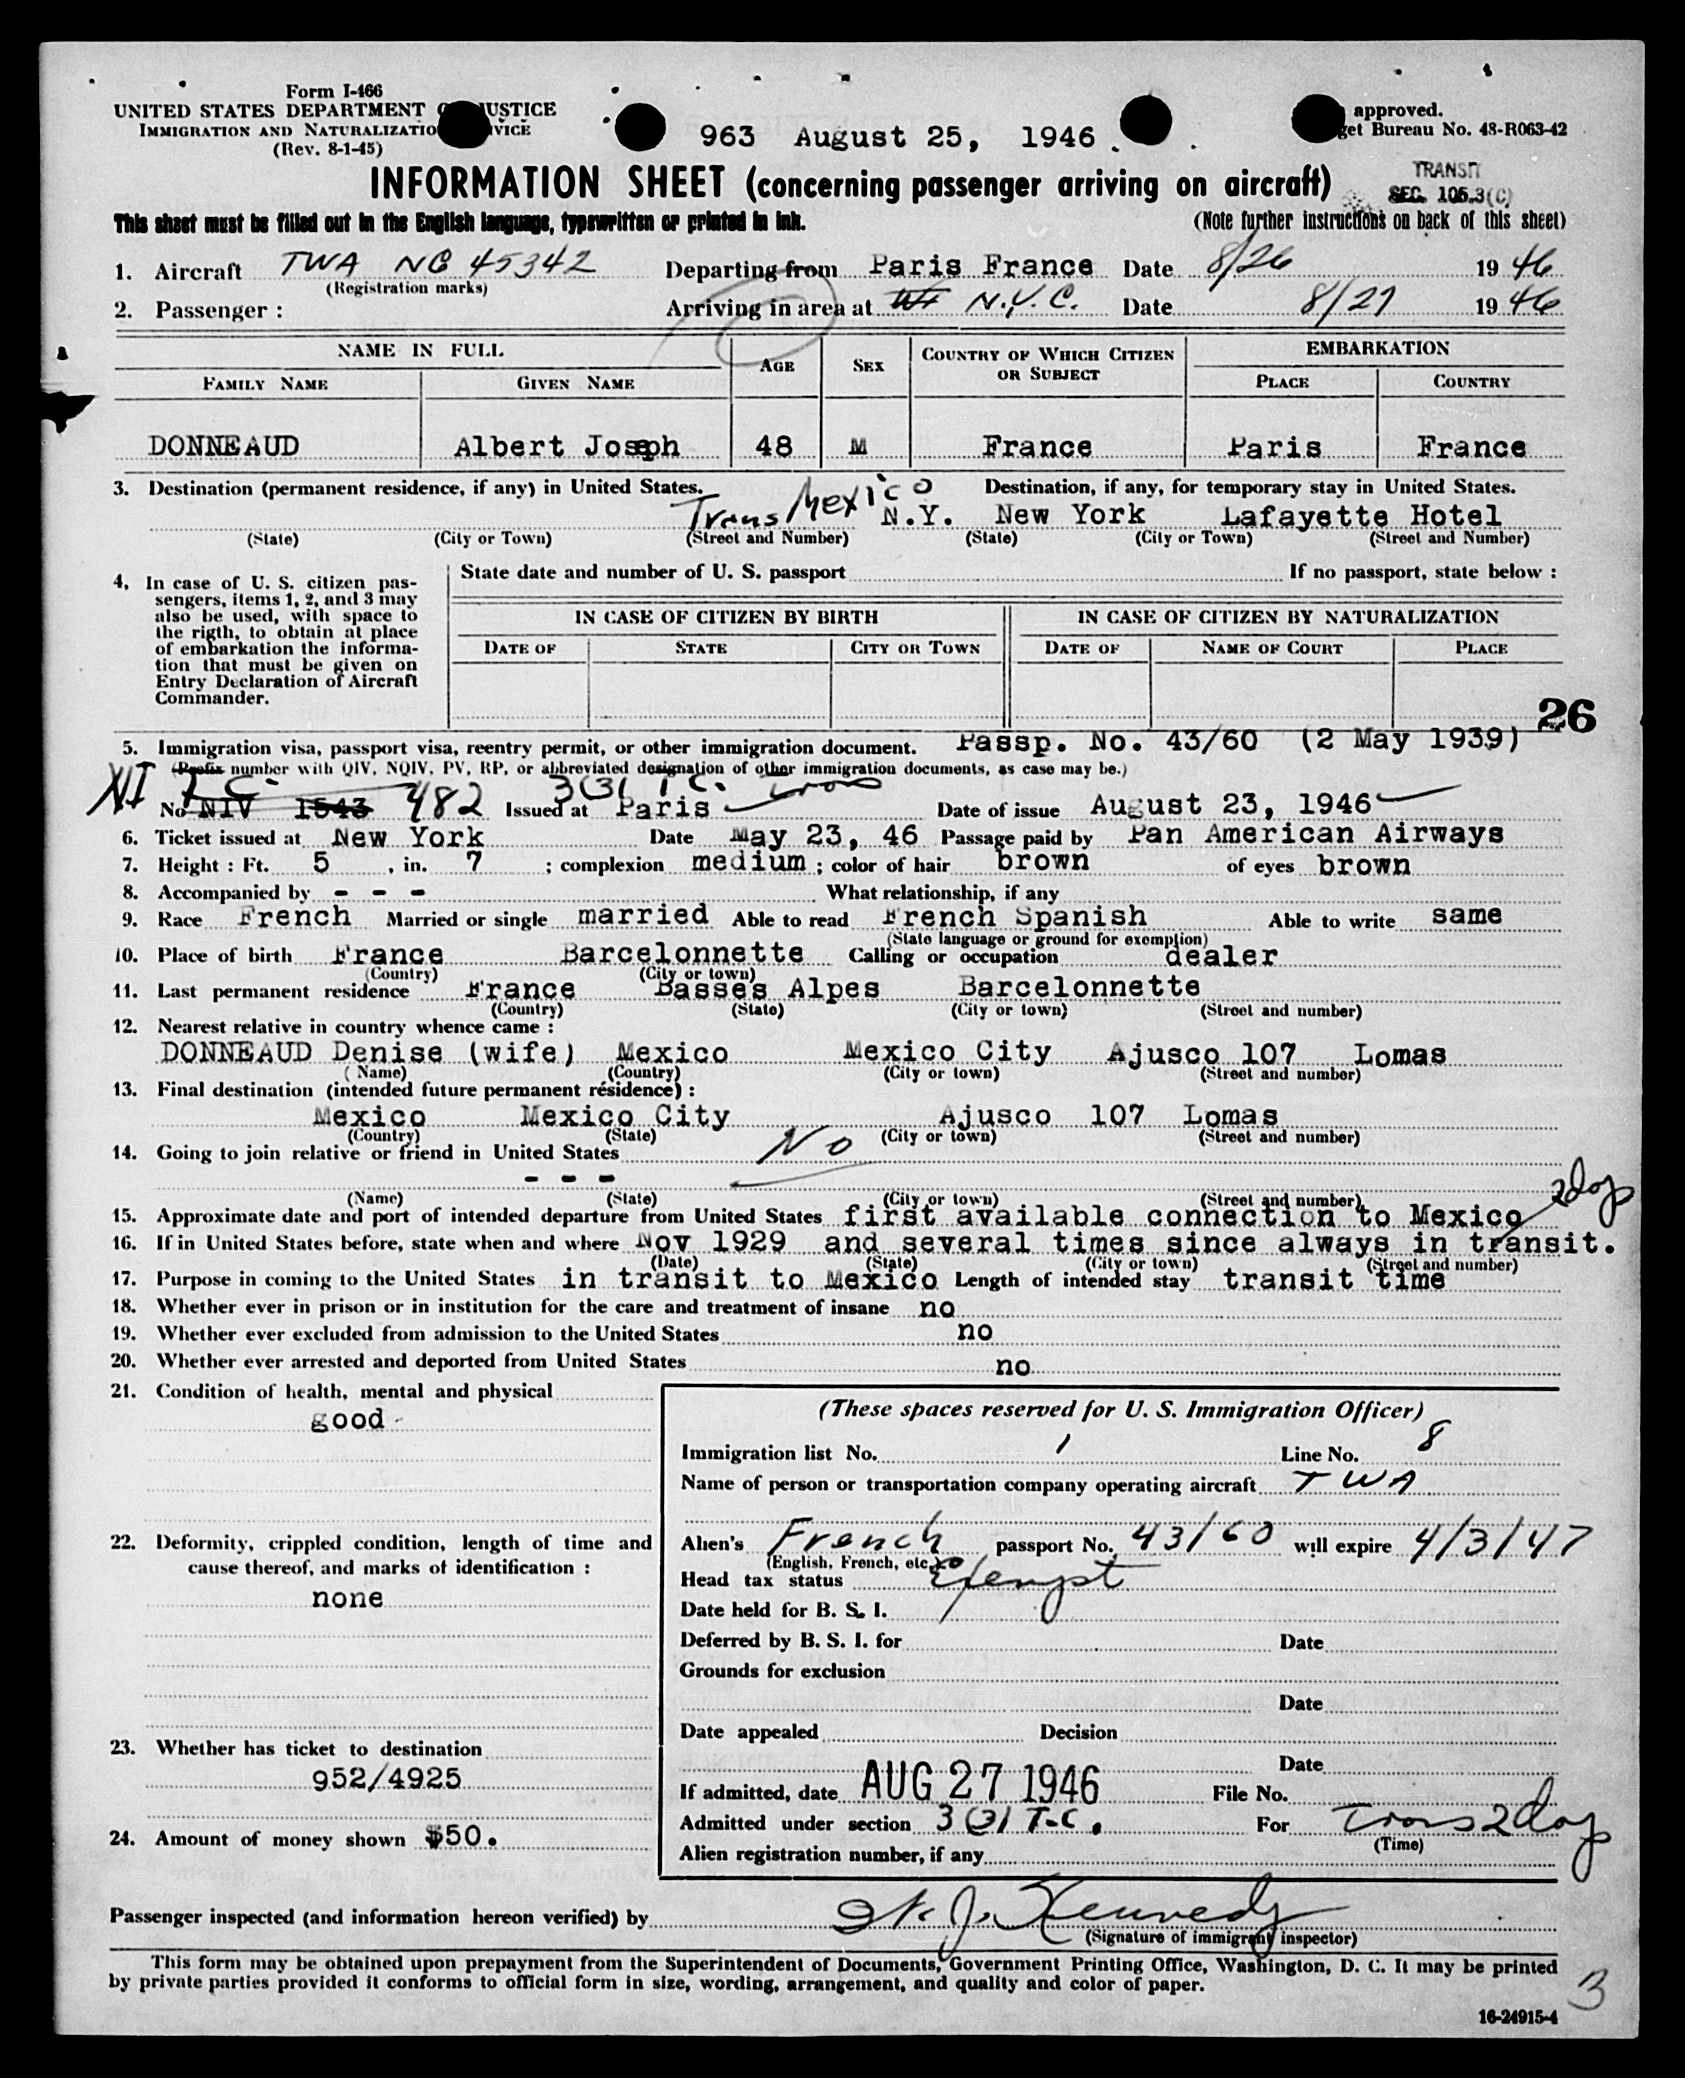 Form I-466
UNITED STATES DEPARTMENT OF JUSTICE
IMMIGRATION AND NATURALIZATION SERVICE
(Rev. 8-1-45)
963 August 25, 1946
approved.
get Bureau No. 43-R063-42
INFORMATION SHEET (concerning passenger arriving on aircraft)
TRANSIT
SEC. 105.3(C)
This sheet must be filled out in the English language, typewritten or printed in ink.
(Note further instructions on back of this sheet)
1. Aircraft TWA NC 45342 Departing from Paris France Date 8/26 1946
(Registration marks)
2. Passenger : Arriving in area at N.Y.C. Date 8/27 1946
NAME IN FULL AGE SEX COUNTRY OF WHICH CITIZEN OR SUBJECT EMBARKATION
FAMILY NAME GIVEN NAME PLACE COUNTRY
DONNEAUD Albert Joseph 48 M France Paris France
3. Destination (permanent residence, if any) in United States. Destination, if any, for temporary stay in United States.
Trans Mexico N.Y. New York Lafayette Hotel
(State) (City or Town) (Street and Number) (State) (City or Town) (Street and Number)
4. In case of U. S. citizen pas-
sengers, items 1, 2, and 3 may
also be used, with space to
the rigth, to obtain at place
of embarkation the informa-
tion that must be given on
Entry Declaration of Aircraft
Commander.
State date and number of U. S. passport If no passport, state below :
IN CASE OF CITIZEN BY BIRTH IN CASE OF CITIZEN BY NATURALIZATION
DATE OF STATE CITY OR TOWN DATE OF NAME OF COURT PLACE
26
5. Immigration visa, passport visa, reentry permit, or other immigration document. Passp. No. 43/60 (2 May 1939)
(Prefix number with QIV, NQIV, PV, RP, or abbreviated designation of other immigration documents, as case may be.)
XI T.C. 3(3) T C. Trans
No NIV 1543 482 Issued at Paris Date of issue August 23, 1946
6. Ticket issued at New York Date May 23, 46 Passage paid by Pan American Airways
7. Height : Ft. 5 , in. 7 ; complexion medium ; color of hair brown of eyes brown
8. Accompanied by - - - What relationship, if any
9. Race French Married or single married Able to read French Spanish Able to write same
(State language or ground for exemption)
10. Place of birth France Barcelonnette Calling or occupation dealer
(Country) (City or town)
11. Last permanent residence France Basses Alpes Barcelonnette
(Country) (State) (City or town) (Street and number)
12. Nearest relative in country whence came :
DONNEAUD Denise (wife) Mexico Mexico City Ajusco 107 Lomas
(Name) (Country) (City or town) (Street and number)
13. Final destination (intended future permanent résidence) :
Mexico Mexico City Ajusco 107 Lomas
(Country) (State) (City or town) (Street and number)
14. Going to join relative or friend in United States No
- - -
(Name) (State) (City or town) (Street and number)
2 days
15. Approximate date and port of intended departure from United States first available connection to Mexico
16. If in United States before, state when and where Nov 1929 and several times since always in transit.
(Date) (State) (City or town) (Street and number)
17. Purpose in coming to the United States in transit to Mexico Length of intended stay transit time
18. Whether ever in prison or in institution for the care and treatment of insane no
19. Whether ever excluded from admission to the United States no
20. Whether ever arrested and deported from United States no
21. Condition of health, mental and physical
good
22. Deformity, crippled condition, length of time and
cause thereof, and marks of identification :
none
23. Whether has ticket to destination
952/4925
24. Amount of money shown $50.
(These spaces reserved for U. S. Immigration Officer)
Immigration list No. 1 Line No. 8
Name of person or transportation company operating aircraft TWA
Alien's French passport No. 43/60 will expire 4/3/47
(English, French, etc.)
Head tax status Exempt
Date held for B. S. I.
Deferred by B. S. I. for Date
Grounds for exclusion
Date
Date appealed Decision
Date
If admitted, date AUG 27 1946 File No.
Admitted under section 3(3) T-C. For Trans 2 days
(Time)
Alien registration number, if any
Passenger inspected (and information hereon verified) by J. Kennedy
(Signature of immigrant inspector)
This form may be obtained upon prepayment from the Superintendent of Documents, Government Printing Office, Washington, D. C. It may be printed
by private parties provided it conforms to official form in size, wording, arrangement, and quality and color of paper.
3
16-24915-4